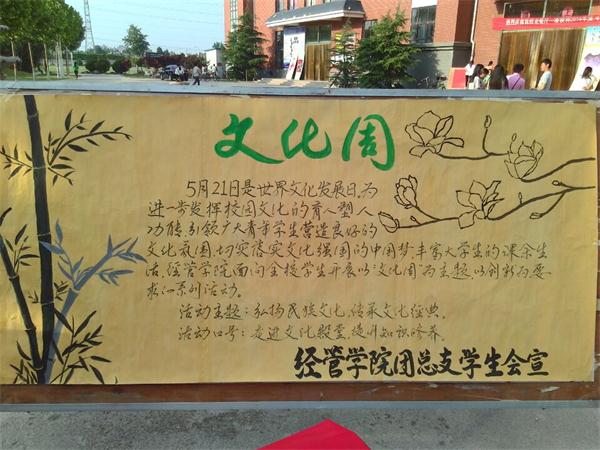 文化周
5月21日是世界文化发展日,为
进一步发挥校园文化的育人塑人
功能,引领广大青年学生营造良好的
文化氛围,切实落实文化强国的中国梦,丰富大学生的课余生
活,经管学院面向全校学生开展以"文化周"为主题,以创新为要
求的系列活动。
活动主题:弘扬民族文化,传承文化经典。
活动口号:走进文化殿堂,提升知识修养。
经管学院团总支学生会宣